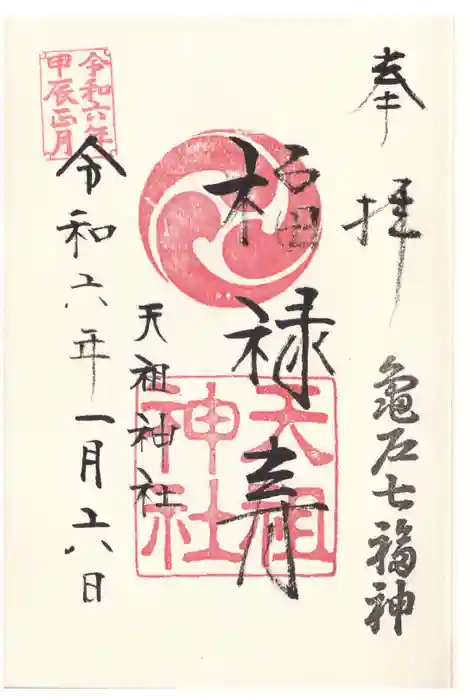 奉拝
亀戸七福神
福禄寿
天祖神社
天祖神社
令和六年一月六日
令和六年
甲辰正月